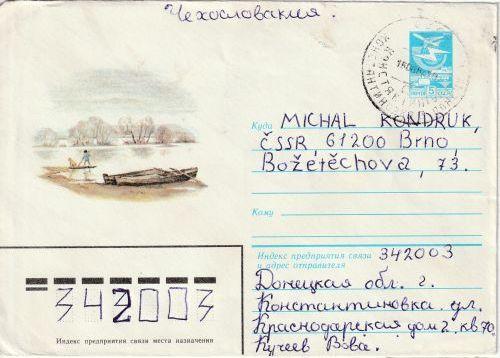 Чехословакия.
ПОЧТА 5 СССР
Куда MICHAL KONDRUK,
ČSSR, 61200 Brno,
Božetěchova, 73.
Кому
Индекс предприятия связи
и адрес отправителя
342003
Донецкая обл. г.
Константиновка ул.
Краснодарская дом 2. кв 70.
Кучеев Вова.
342003
Индекс предприятия связи места назначения